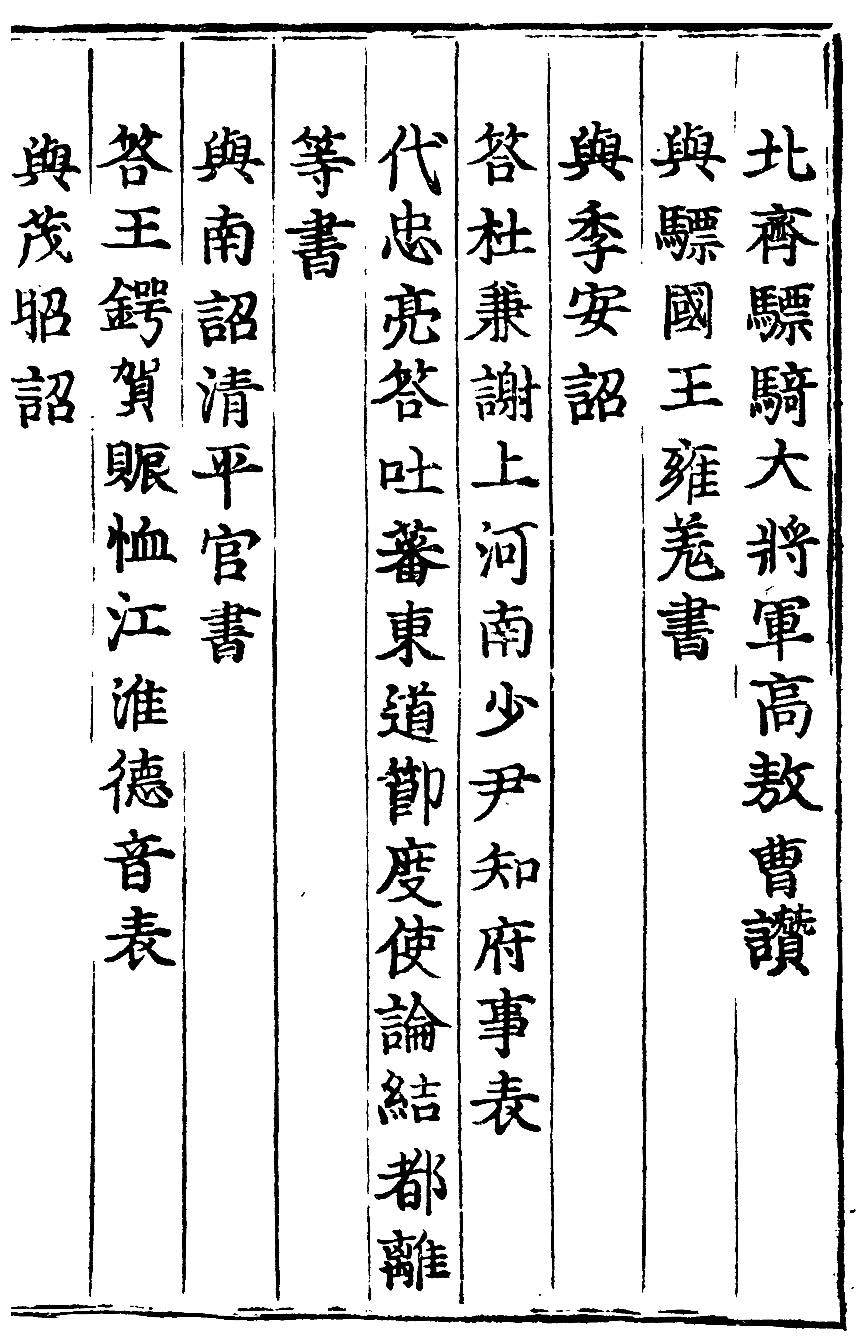 北齊驃騎大將軍高敖曹讚
與驃國王雍羗書
與季安詔
答杜兼謝上河南少尹知府事表
代忠亮答吐蕃東道節度使論結都離
等書
與南詔清平官書
答王鍔賀賑恤江淮德音表
與茂昭詔